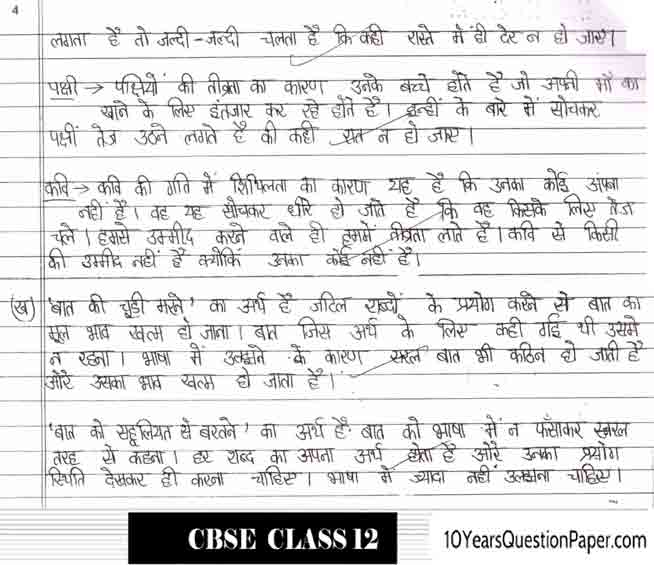 4
लगता है तो जल्दी-जल्दी चलता है कि कही रास्ते में ही देर न हो जाए।
पक्षी → पक्षियों की तीव्रता का कारण उनके बच्चे होते है जो अपनी माँ का
खाने के लिए इंतजार कर रहे होते है। इन्हीं के बारे में सोचकर
पक्षीं तेज उठने लगते है की कही रात न हो जाए।
कवि → कवि की गति में शिथिलता का कारण यह है कि उनका कोई अपना
नहीं है। वह यह सोचकर धीरे हो जाते है कि वह किसके लिए तेज
चले। हमसे उम्मीद करने वाले ही हममें तीव्रता लाते है। कवि से किसी
की उम्मीद नहीं है क्योंकि उनका कोई नहीं है।
(ख) 'बात की चूड़ी मरने' का अर्थ है जटिल शब्दों के प्रयोग करने से बात का
मूल भाव खत्म हो जाना। बात जिस अर्थ के लिए कही गई थी उसमे
न रहना। भाषा में उलझने के कारण सरल बात भी कठिन हो जाती है
और उसका भाव खत्म हो जाता है।
'बात को सहूलियत से बरतने' का अर्थ है बात को भाषा में न फँसाकर सरल
तरह से कहना। हर शब्द का अपना अर्थ होता है और उनका प्रयोग
स्थिति देखकर ही करना चाहिए। भाषा में ज्यादा नहीं उलझना चाहिए।
CBSE CLASS 12
10YearsQuestionPaper.com